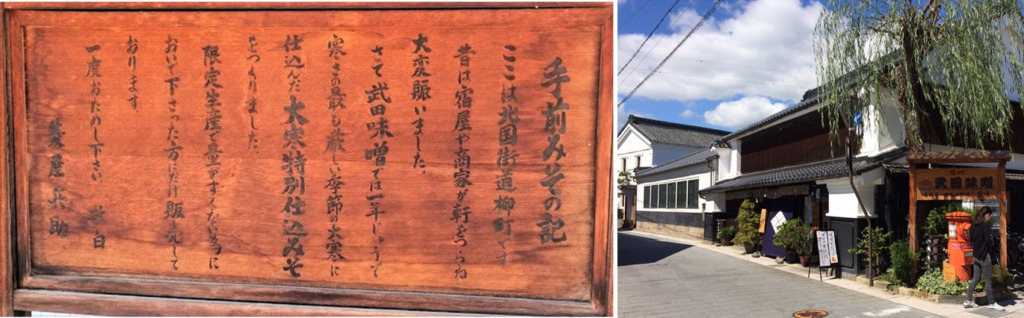 手前みその記
ここは北国街道柳町です
昔は宿屋や商家が軒をつらね
大変賑いました。
さて武田味噌では一年じゅうで
寒さの最も厳しい季節の大寒に
仕込んだ大寒特別仕込みそ
をつくりました。
限定生産で量がすくない為に
おいで下さった方にだけ販売して
おります。
一度おためし下さい。 敬白
菱屋兵助
武田味噌